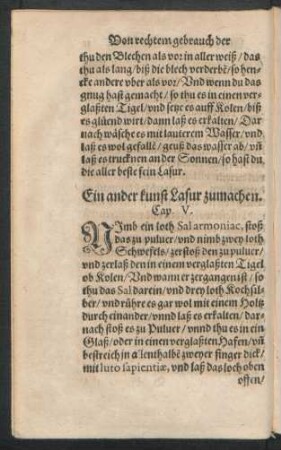 Von rechtem gebrauch der
thu den Blechen als vor in aller weiß / das
thu als lang / biß die blech verderbẽ / so hen-
cke andere vber als vor / Vnd wenn du das
gnug hast gemacht / so thu es in einen ver-
glaßten Tigel / vnd setze es auff Kolen / biß
es glüend wirt / dann laß es erkalten / Dar
nach wäsche es mit lauterem Wasser / vnd
laß es wol gefallẽ / geuß das wasser ab / vñ
laß es trucknen an der Sonnen / so hast du
die aller beste fein Lasur.
Ein ander kunst Lasur zumachen.
Cap. V.
NImb ein loth Sal armoniac, stoß
das zu puluer / vnd nimb zwey loth
Schwefels / zerstoß den zu puluer /
vnd zerlaß den in einem verglaßten Tigel
ob Kolen / Vnd wann er zergangen ist / so
thu das Sal darein / vnd drey loth Kochsil-
ber / vnd rühre es gar wol mit einem Holtz
durch einander / vnnd laß es erkalten / dar-
nach stoß es zu Puluer / vnnd thu es in ein
Glaß / oder in einen verglaßten Hafen / vñ
bestreich jn allenthalbẽ zweyer finger dick /
mit luto sapientiæ, vnd laß das loch oben
offen /